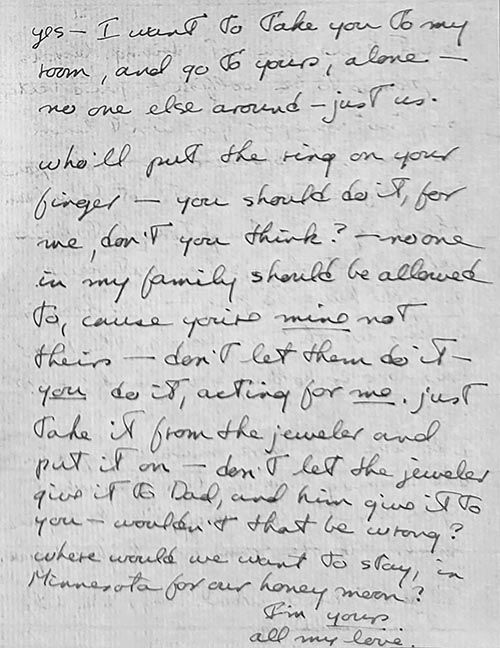 yes – I want to take you to my
room, and go to yours, alone –
no one else around – just us.
who'll put the ring on your
finger – you should do it, for
me, don't you think? – no one
in my family should be allowed
to, cause you're mine not
theirs – don't let them do it –
you do it, acting for me. just
take it from the jeweler and
put it on – don't let the jeweler
give it to Dad, and him give it to
you – wouldn't that be wrong?
where would we want to stay, in
Minnesota for our honey moon?
I'm yours
all my love.